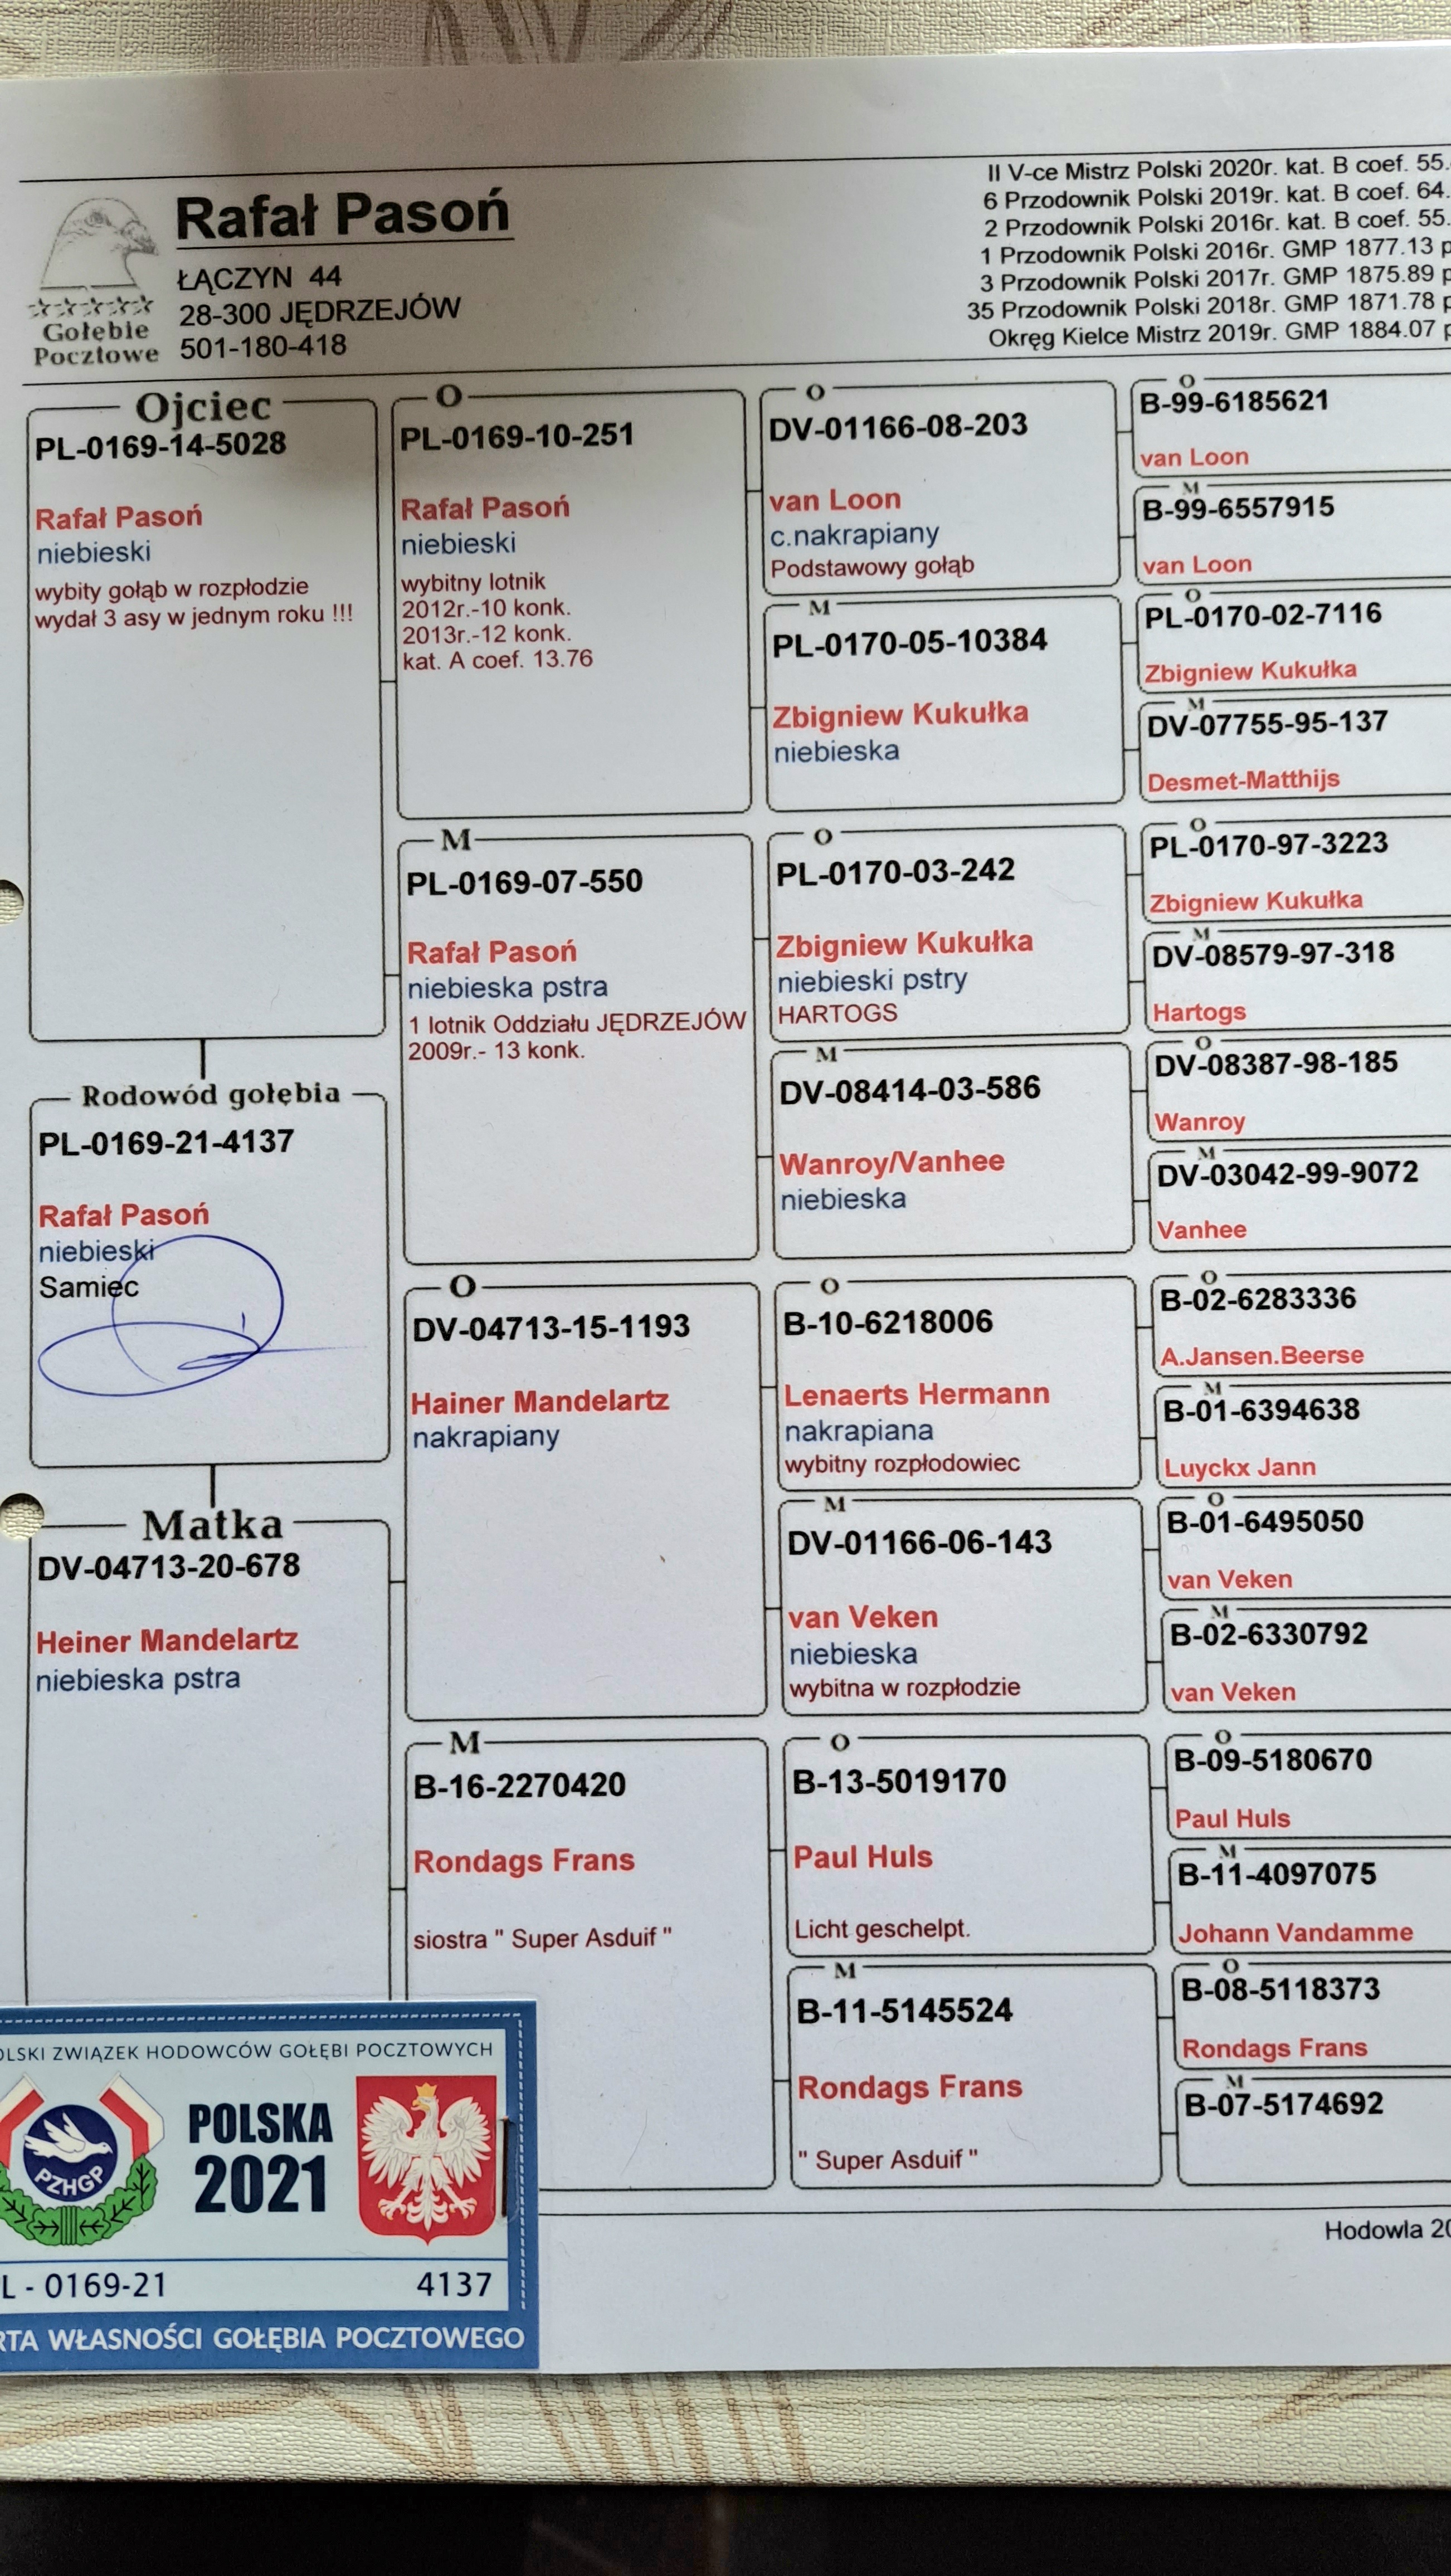 II V-ce Mistrz Polski 2020r. kat. B coef. 55.
6 Przodownik Polski 2019r. kat. B coef. 64.
2 Przodownik Polski 2016r. kat. B coef. 55.
1 Przodownik Polski 2016r. GMP 1877.13 p
3 Przodownik Polski 2017r. GMP 1875.89 p
35 Przodownik Polski 2018r. GMP 1871.78 p
Okręg Kielce Mistrz 2019r. GMP 1884.07 p
Gołębie
Pocztowe
Rafał Pasoń
ŁĄCZYN 44
28-300 JĘDRZEJÓW
501-180-418
Ojciec
PL-0169-14-5028
Rafał Pasoń
niebieski
wybity gołąb w rozpłodzie
wydał 3 asy w jednym roku !!!
Rodowód gołębia
PL-0169-21-4137
Rafał Pasoń
niebieski
Samiec
Matka
DV-04713-20-678
Heiner Mandelartz
niebieska pstra
O
PL-0169-10-251
Rafał Pasoń
niebieski
wybitny lotnik
2012r.-10 konk.
2013r.-12 konk.
kat. A coef. 13.76
M
PL-0169-07-550
Rafał Pasoń
niebieska pstra
1 lotnik Oddziału JĘDRZEJÓW
2009r.- 13 konk.
O
DV-04713-15-1193
Hainer Mandelartz
nakrapiany
M
B-16-2270420
Rondags Frans
siostra " Super Asduif "
O
DV-01166-08-203
van Loon
c.nakrapiany
Podstawowy gołąb
M
PL-0170-05-10384
Zbigniew Kukułka
niebieska
O
PL-0170-03-242
Zbigniew Kukułka
niebieski pstry
HARTOGS
M
DV-08414-03-586
Wanroy/Vanhee
niebieska
O
B-10-6218006
Lenaerts Hermann
nakrapiana
wybitny rozpłodowiec
M
DV-01166-06-143
van Veken
niebieska
wybitna w rozpłodzie
O
B-13-5019170
Paul Huls
Licht geschelpt.
M
B-11-5145524
Rondags Frans
" Super Asduif "
O
B-99-6185621
van Loon
M
B-99-6557915
van Loon
O
PL-0170-02-7116
Zbigniew Kukułka
M
DV-07755-95-137
Desmet-Matthijs
O
PL-0170-97-3223
Zbigniew Kukułka
M
DV-08579-97-318
Hartogs
O
DV-08387-98-185
Wanroy
M
DV-03042-99-9072
Vanhee
O
B-02-6283336
A.Jansen.Beerse
M
B-01-6394638
Luyckx Jann
O
B-01-6495050
van Veken
M
B-02-6330792
van Veken
O
B-09-5180670
Paul Huls
M
B-11-4097075
Johann Vandamme
O
B-08-5118373
Rondags Frans
M
B-07-5174692
Hodowla 20
OLSKI ZWIĄZEK HODOWCÓW GOŁĘBI POCZTOWYCH
PZHGP
POLSKA
2021
L - 0169-21 4137
RTA WŁASNOŚCI GOŁĘBIA POCZTOWEGO